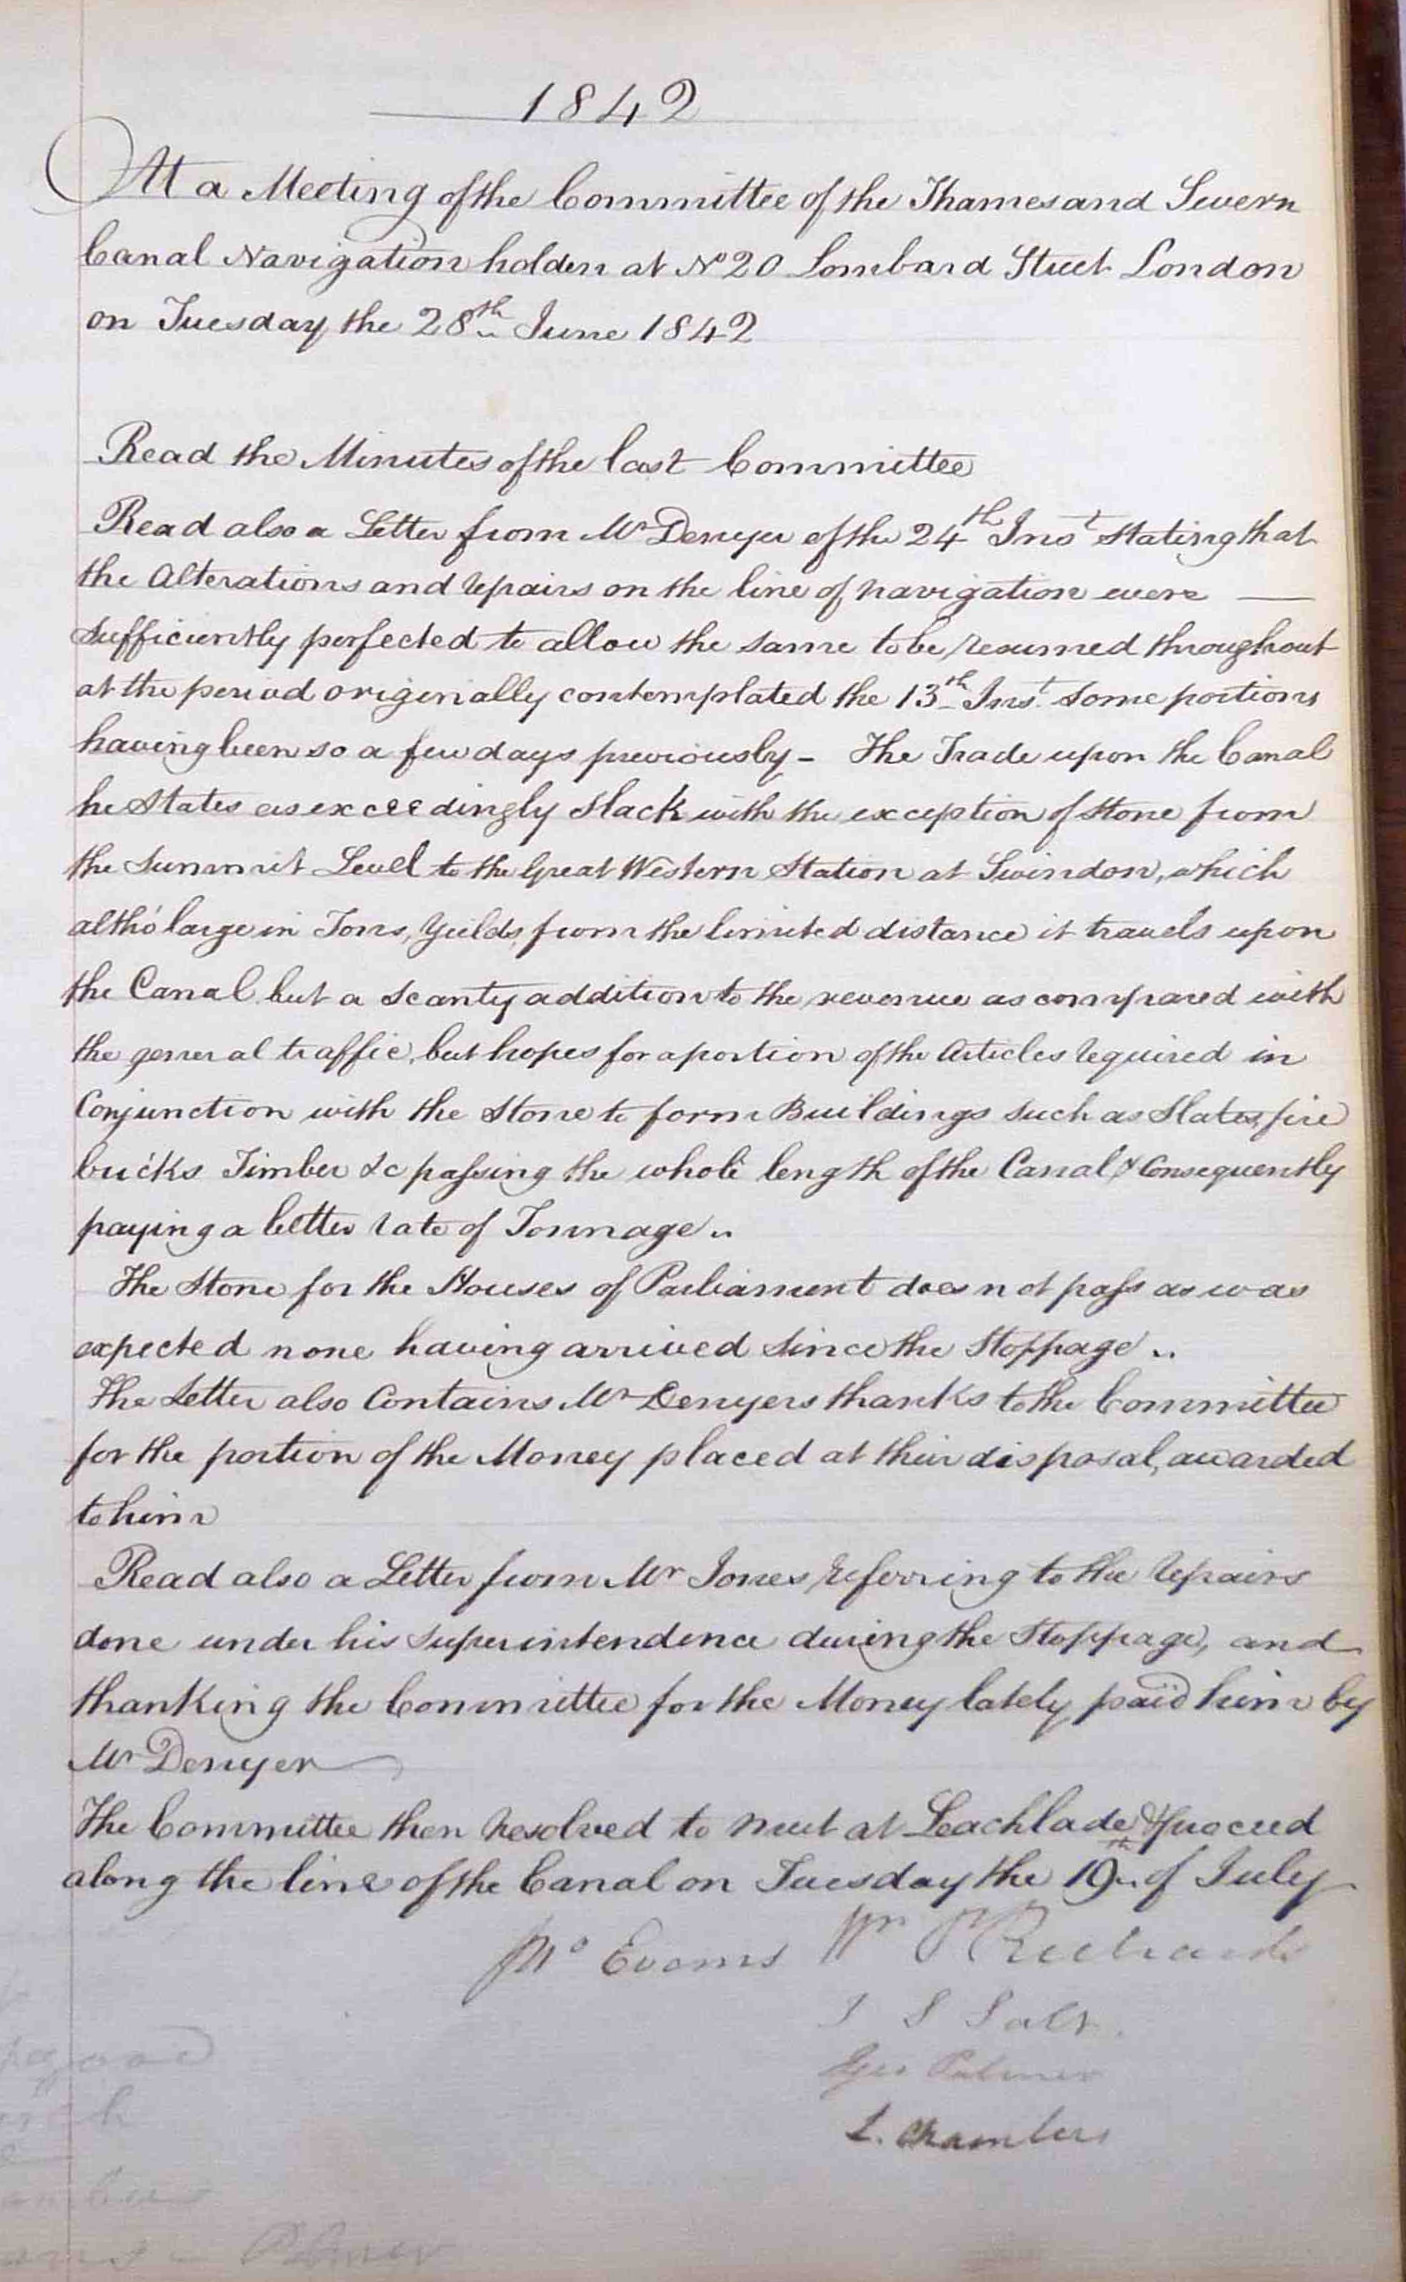 1842
At a Meeting of the Committee of the Thames and Severn
Canal Navigation holden at No 20 Lombard Street London
on Tuesday the 28th June 1842
Read the Minutes of the last Committee
Read also a Letter from Mr Denyer of the 24th Inst stating that
the Alterations and repairs on the line of navigation were —
sufficiently perfected to allow the same to be resumed throughout
at the period originally contemplated the 13th Inst. some portions
having been so a few days previously - The Trade upon the Canal
he States as exceedingly slack with the exception of stone from
the Summit Level to the Great Western Station at Swindon, which
altho' large in Tons, yields from the limited distance it travels upon
the Canal but a scanty addition to the revenue as compared with
the general traffic, but hopes for a portion of the Articles required in
Conjunction with the Stone to form Buildings such as Slates, fire
bricks Timber &c passing the whole length of the Canal & Consequently
paying a better rate of Tonnage..
The Stone for the Houses of Parliament does not pass as was
expected none having arrived since the Stoppage..
The Letter also Contains Mr Denyers thanks to the Committee
for the portion of the Money placed at their disposal, awarded
to him
Read also a Letter from Mr Jones referring to the repairs
done under his superintendence during the Stoppage, and
thanking the Committee for the Money lately paid him by
Mr Denyer
The Committee then resolved to meet at Leachlade & proceed
along the line of the Canal on Tuesday the 19th of July
Jno Evans Wm P Richards
J S Salt
Geo Palmer
L. Chambers